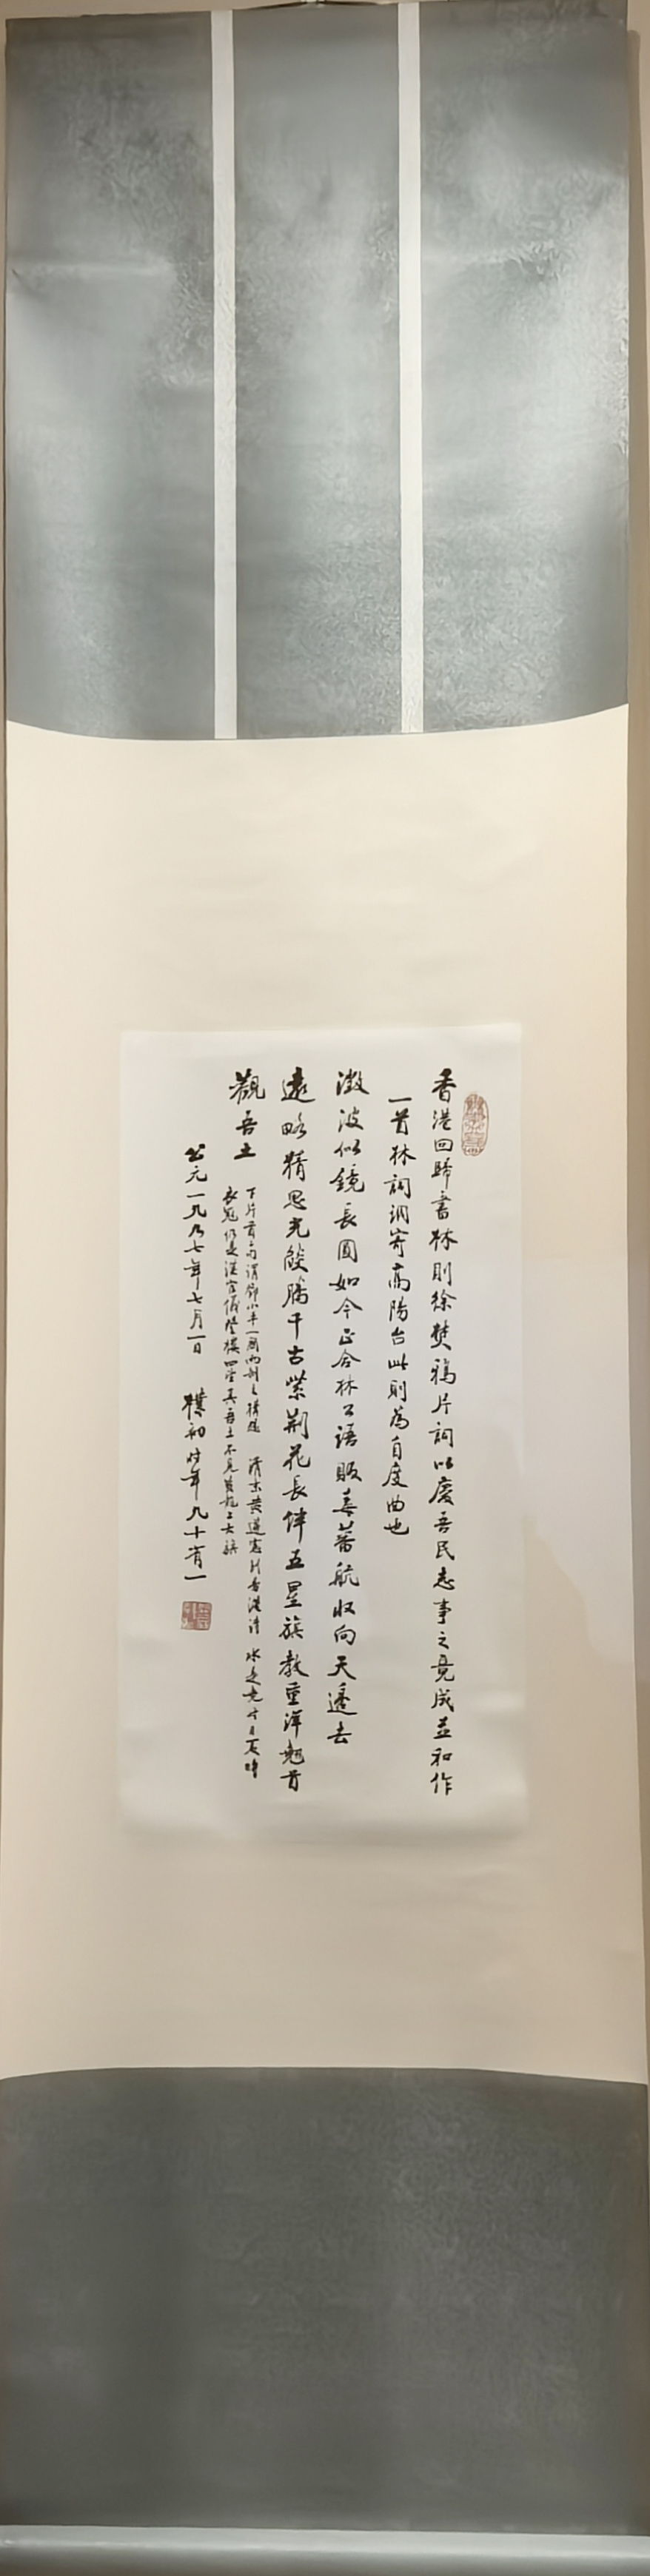 香港回歸書林則徐焚鴉片詞以慶吾民志事之竟成並和作
一首林詞調寄高陽台此則為自度曲也
澂波似鏡長圓如今正合林公語販毒蕃航收向天邊去
遠略精思光燄騰千古紫荊花長伴五星旗教重洋翹首
觀吾土
下片首句謂鄧小平一國兩制之構想 清末黃遵憲到香港詩 水是堯時日夏時
衣冠仍是漢官儀登樓四望真吾土不見黃龍上大旗
公元一九九七年七月一日 樸初時年九十有一